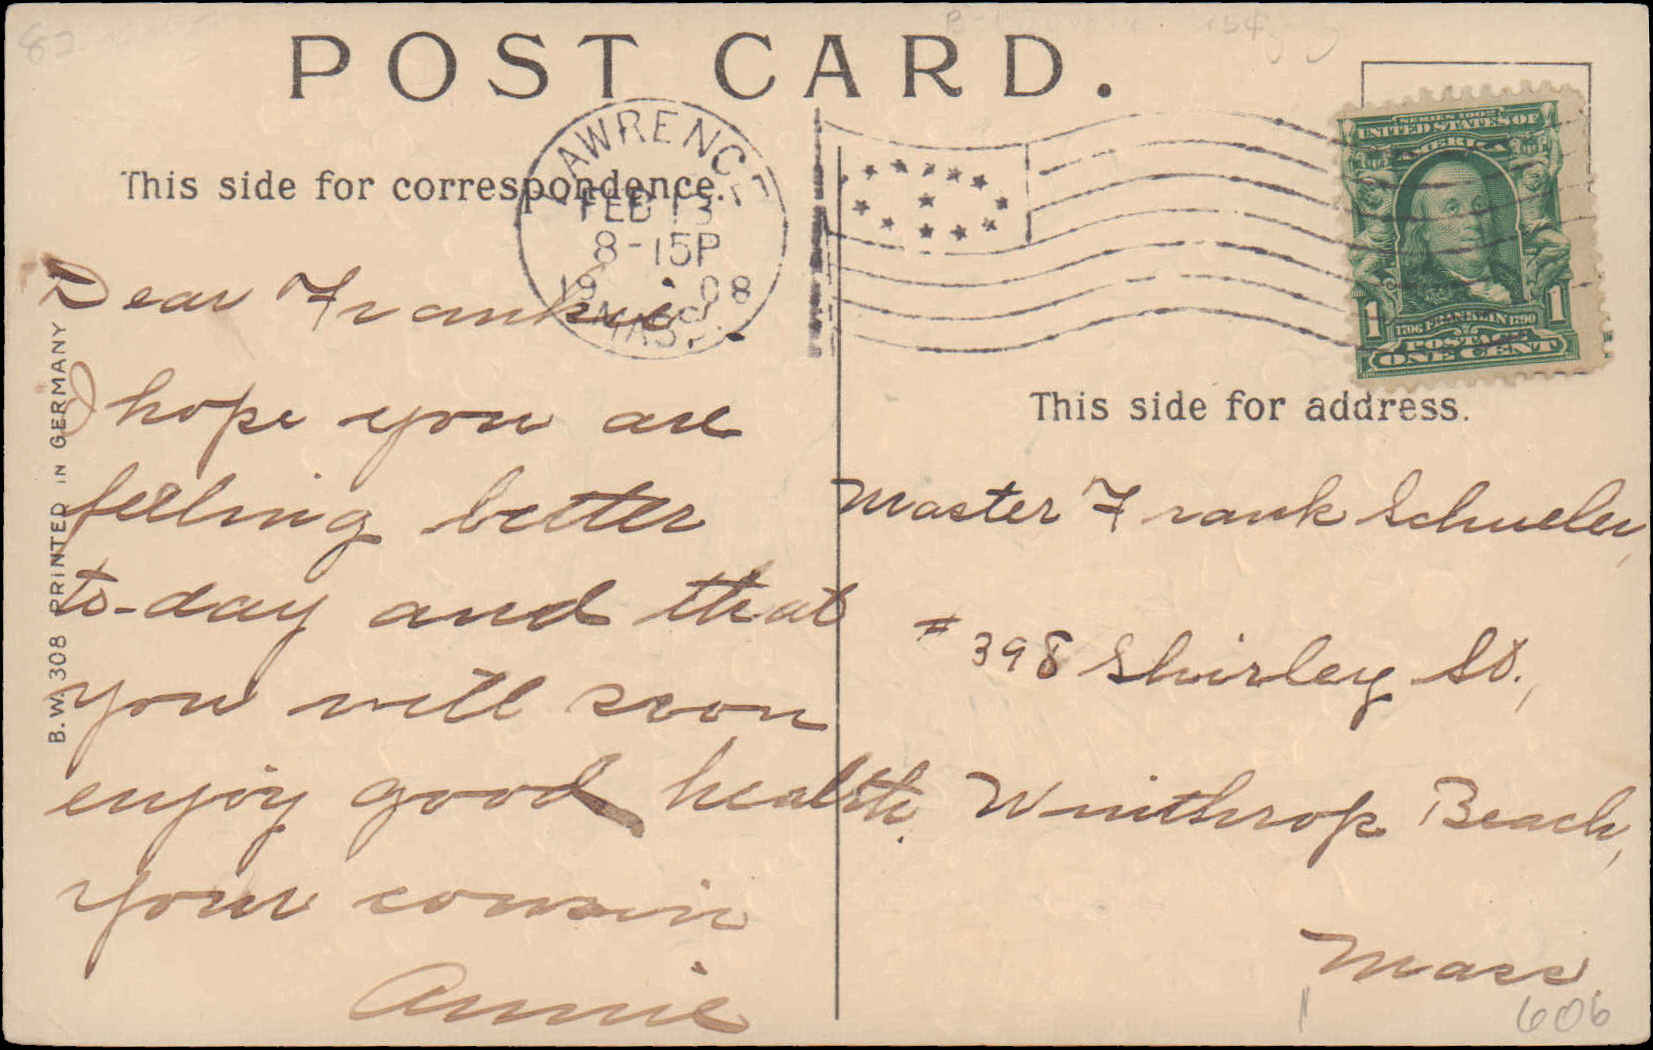 POST CARD.
This side for correspondence.
LAWRENCE
FEB 13
8-15P
1908
MASS.
SERIES 1902
UNITED STATES OF
AMERICA
1706 FRANKLIN 1790
1 1
POSTAGE
ONE CENT
Dear Frankie
I hope you are
feeling better
to-day and that
you will soon
enjoy good health.
Your cousin
Annie
B.W. 308 PRINTED IN GERMANY
This side for address.
Master Frank Schueler,
# 398 Shirley St.,
Winthrop Beach,
Mass.
606